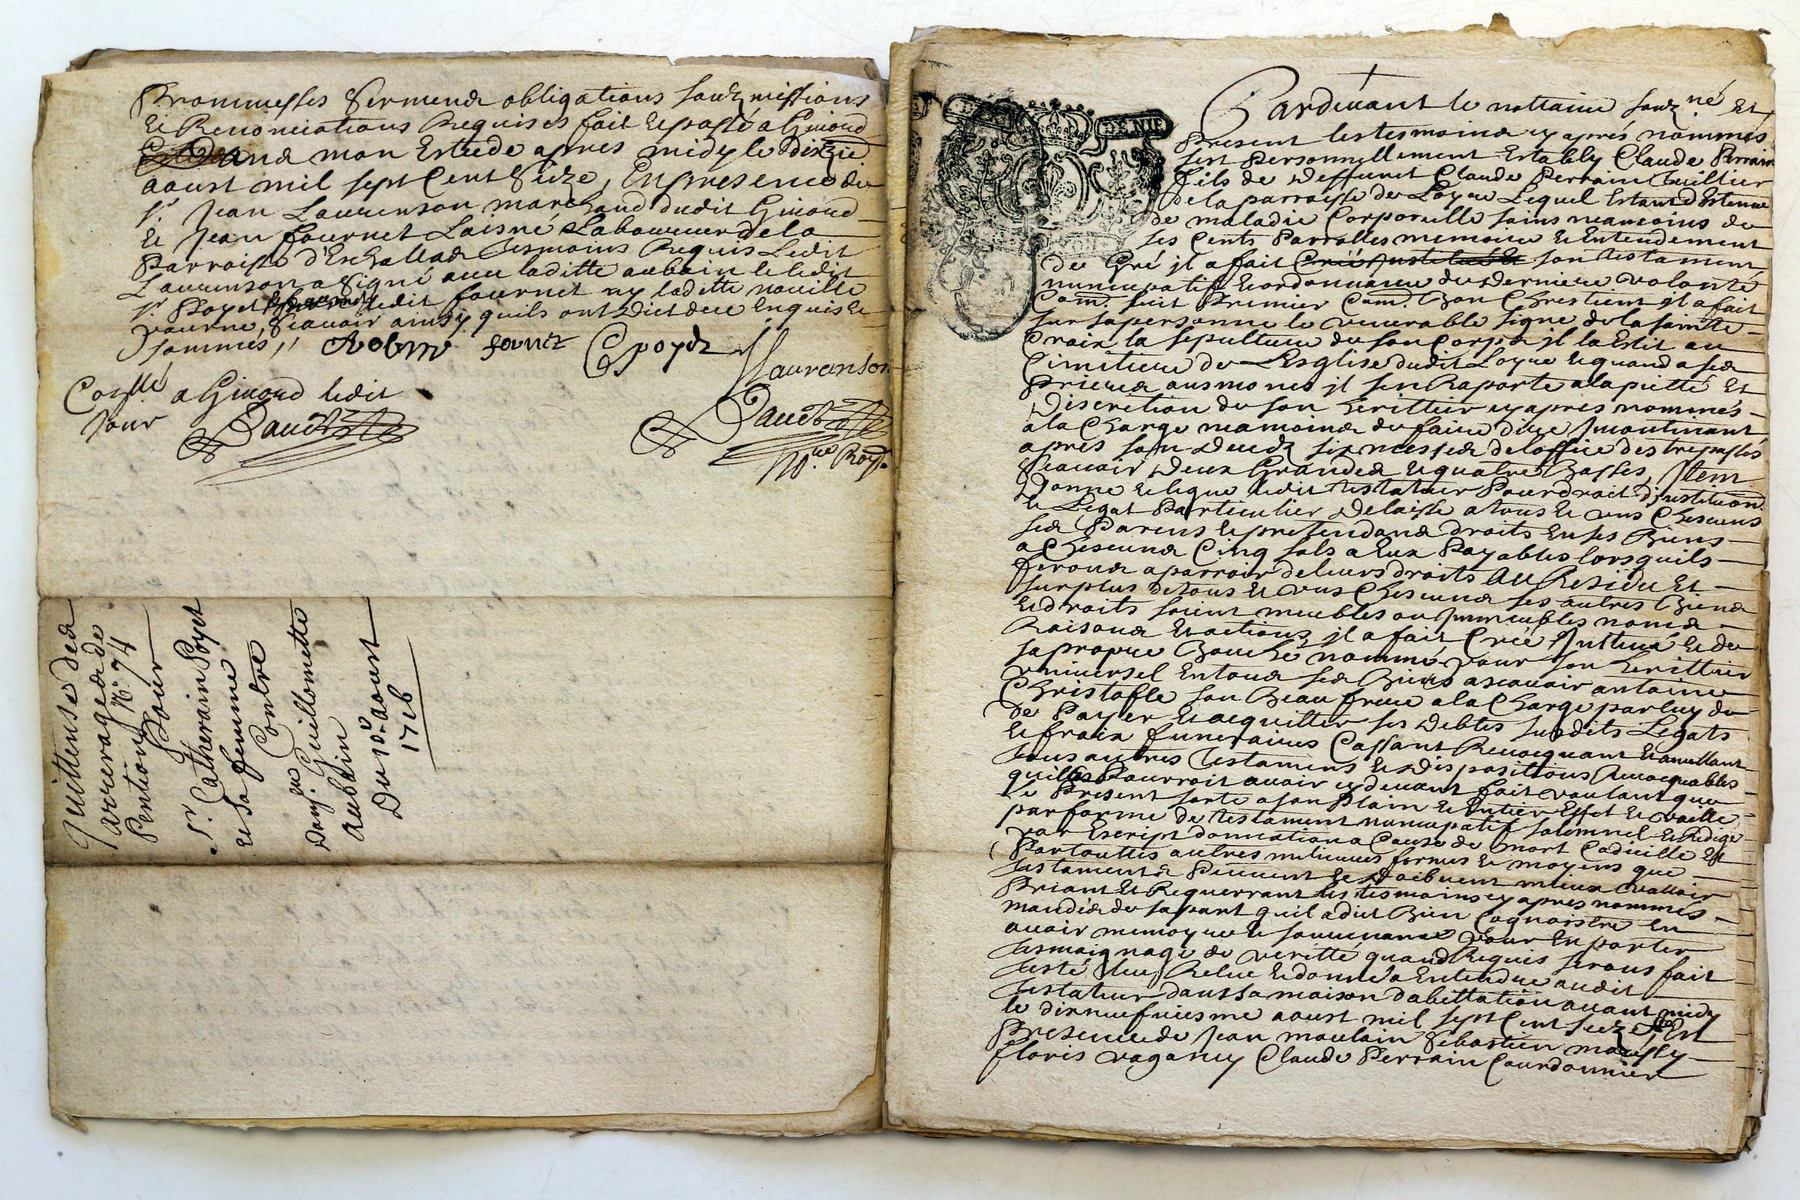 Prommesses Serment obligations soubzmissions
Et Renonciations Requises fait Et passé a Ginond
mon Estude apres midy le dix
aoust mil sept Cent Seize, En presence du
Sr. Jean Laurenson marchand dudit Ginond
Et Jean fournet Laisné Laboureur de la
Parroisse d'Esgallad tesmoins Requis Ledit
Laurenson a signé avec laditte aubain Et ledit
Sr. Poyet ledit fournet ny ladette nouille
pour ne Scavoir ainsy quils ont dict de ce Enquis Et
sommés,
Robin fournet Cpoyet
Laurenson
a Ginond ledit
jour
Daudet
Daudet
No.re Roy.
Quittense des
arrerages de
Pention N.° 74
Pour
Sr. Catherain Poyet
Et sa femme
Contre
Guillomette
Aubain
Du 10 aoust
1716
Pardevant le nottaire soubz.né Et
Present les tesmoins cy apres nommés
sest Personnellement Estably Claude Perrain
fils de deffunct Claude Perrain
de la parroisse de Loyue Lequel Estant detenue
de maladie Corporelle sains neamoins de
ses Cents Parrolles memoire Et Entendement
de Gré jl a fait son testament
nuncupatif Et ordonnance de Derniere volonté
Comē. suit Premier Comē. Bon Chrestient jl a fait
sur sa personne le venerable signe de la sainte
Croix la sepulture de son Corps jl la Eslit au
Cimitiere de LEsglise dudit Loyue Et quand a ses
Prieres ausmones jl sen Raporte a la pietté Et
Discretion de son heritier cy apres nommés
a la Charge neamoins de faire dire jncontinant
apres son Decedz six messes de loffice des trepassés
Scavoir Deux Grandes Et quatre Basses, Jtem
Donne Et legue ledit testateur Pour droit djnstitution
Et Legat Particulier Delaisse a tous Et uns Chescuns
ses Parens Et pretendans droits En ses Biens
a Chescuns Cinq sols a Eux Payables lors quils
feront apparroir de leurs droits Au Residu Et
surplus de tous Et uns Chescuns ses autres Biens
Et droits soient meubles ou jmmeubles noms
Raisons Et actions, jl a fait, Créé jnstitué Et de
sa propre Bouche nommé pour son heritier
universel En tous ses Biens ascavoir antoine
Christofle son Beau frere a la Charge par luy de
de Payer Et acquitter ses Debtes susdits Legats
Et fraix funeraires Cassant Revocquant Et anullant
tous autres testamens Et Dispositions
quil Pourroit avoir cy devant fait voulant que
le Present sorte a son Plain Et Entier Effet Et vaille
par forme de testament nuncupatif solemnel Et Redigé
par Escript donnation a Cause de mort Codicille Et
Par touttes autres milieures formes Et moyens que
testaments Peuvent Et Doibvent mieux valloir
Priant Et Requerrant les tesmoins cy apres nommés
mandés de sa part quil a dict Bien Cognoistre En
avoir memoyre Et souvenance pour En porter
tesmaignage de veritté quand Requis seront fait
leu Releu Et donné a Entendre audit
testateur dans sa maison dabittation avant midy
le dixneufviesme aoust mil sept Cent seize En
Presence de Jean moulain Sebastien
floris Claude Perrain Courdonnier